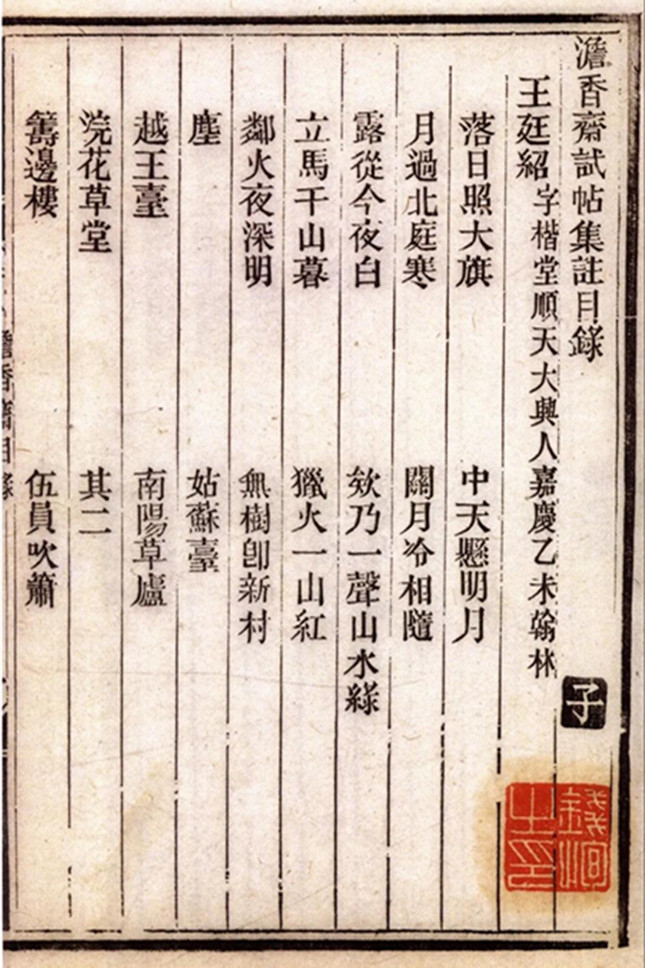 澹香齋試帖集註目錄 子
王廷紹 字楷堂順天大興人嘉慶乙未翰林
落日照大旗 中天懸明月
月過北庭寒 關月冷相隨
露從今夜白 欸乃一聲山水綠
立馬千山暮 獵火一山紅
鄰火夜深明 無樹卽新村
塵 姑蘇臺
越王臺 南陽草廬
浣花草堂 其二
籌邊樓 伍員吹蕭
澹香齋目錄